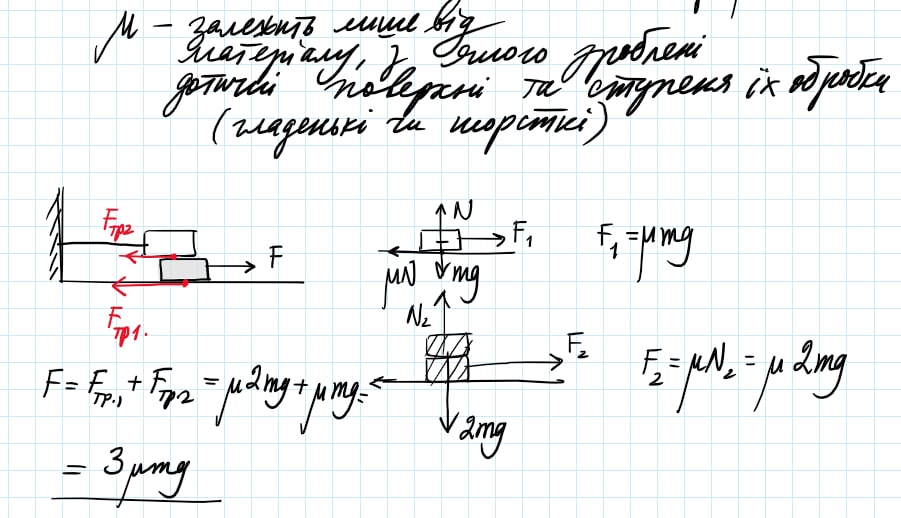 μ – залежить лише від
матеріалу, з якого зроблені
дотичні поверхні та ступеня їх обробки
(гладенькі чи шорсткі)
Fтр2
F
Fтр1.
N
F₁
μN
mg
F₁ = μmg
N₂
F₂
2mg
F₂ = μN₂ = μ2mg
F = Fтр.₁ + Fтр2 = μ2mg + μmg =
= 3μmg